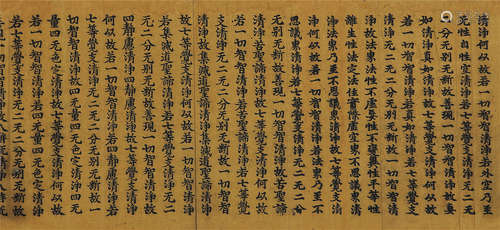 清淨何以故若一切智智清淨若外空乃至
无性自性空清淨若七等覺支清淨无二无
二分无別无斷故善現一切智智清淨故真
如清淨真如清淨故七等覺支清淨何以故
若一切智智清淨若真如清淨若七等覺支
清淨无二无二分无別无斷故一切智智清
淨故法界法性不虛妄性不變異性平等性
離生性法定法住實際虛空界不思議界清
淨法界乃至不思議界清淨故七等覺支清
淨何以故若一切智智清淨若法界乃至不
思議界清淨若七等覺支清淨无二无二分
无別无斷故善現一切智智清淨故苦聖諦
清淨苦聖諦清淨故七等覺支清淨何以故
若一切智智清淨若苦聖諦清淨若七等覺
支清淨无二无二分无別无斷故一切智智
清淨故集滅道聖諦清淨集滅道聖諦清淨
故七等覺支清淨何以故若一切智智清淨
若集滅道聖諦清淨若七等覺支清淨无二
无二分无別无斷故善現一切智智清淨故
四靜慮清淨四靜慮清淨故七等覺支清淨
何以故若一切智智清淨若四靜慮清淨若
七等覺支清淨无二无二分无別无斷故一
切智智清淨故四无量四无色定清淨四无
量四无色定清淨故七等覺支清淨何以故
若一切智智清淨若四无量四无色定清淨
若七等覺支清淨无二无二分无別无斷故